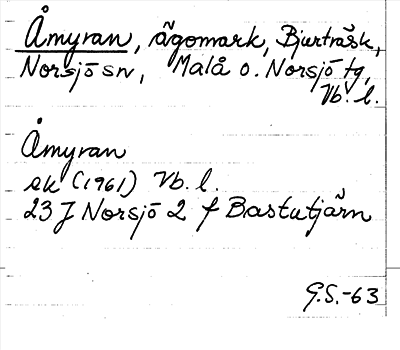 Åmyran, ägomark, Bjurträsk,
Norsjö sn, Malå o. Norsjö tg,
Vb. l.
Åmyran
ek (1961) Vb. l.
23 J Norsjö 2 f Bastutjärn
G.S.-63